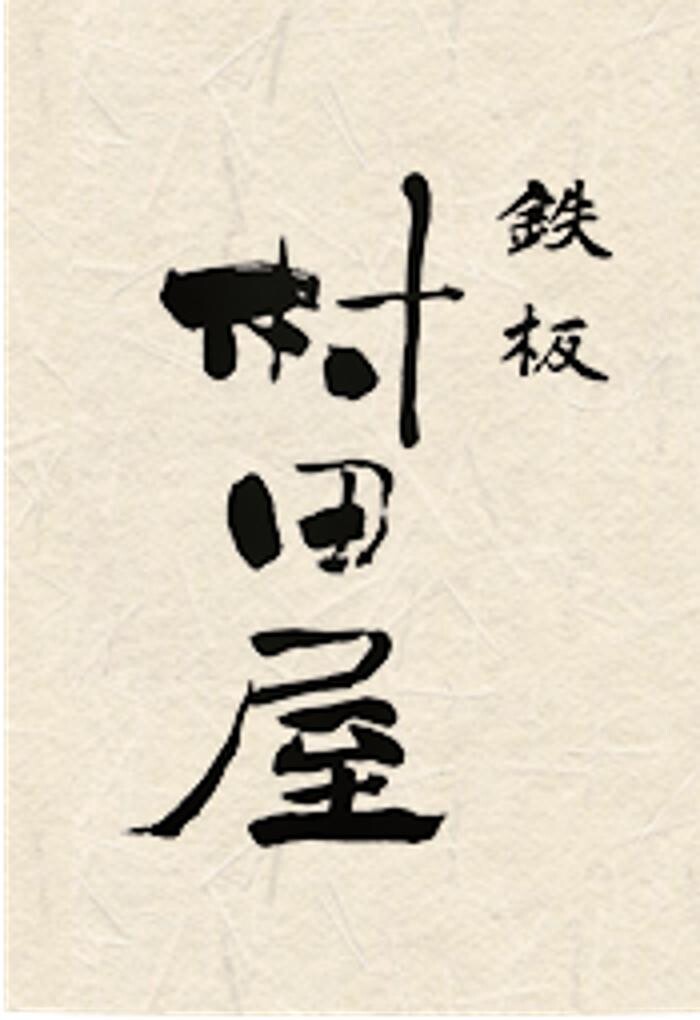 鉄板
村田屋